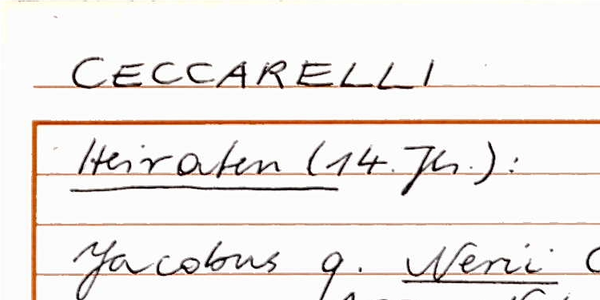 CECCARELLI
Heiraten (14. Jh.):
Jacobus q. Nerii C